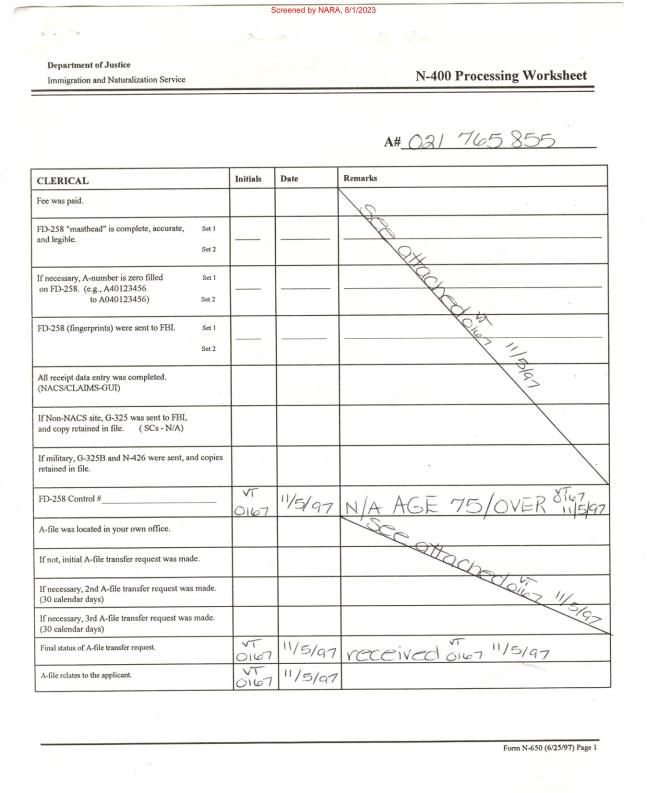 Screened by NARA, 8/1/2023
Department of Justice
Immigration and Naturalization Service
N-400 Processing Worksheet
A# 021 765 855
CLERICAL Initials Date Remarks
Fee was paid.
FD-258 "masthead" is complete, accurate, Set 1
and legible.
Set 2
If necessary, A-number is zero filled Set 1
on FD-258. (e.g., A40123456
to A040123456) Set 2
FD-258 (fingerprints) were sent to FBI. Set 1
Set 2
See attached VT 0167 11/5/97
All receipt data entry was completed.
(NACS/CLAIMS-GUI)
If Non-NACS site, G-325 was sent to FBI,
and copy retained in file. ( SCs - N/A)
If military, G-325B and N-426 were sent, and copies
retained in file.
FD-258 Control # VT 0167 11/5/97 N/A AGE 75/OVER VT 0167 11/5/97
A-file was located in your own office.
See attached VT 0167 11/5/97
If not, initial A-file transfer request was made.
If necessary, 2nd A-file transfer request was made.
(30 calendar days)
If necessary, 3rd A-file transfer request was made.
(30 calendar days)
Final status of A-file transfer request. VT 0167 11/5/97 received VT 0167 11/5/97
A-file relates to the applicant. VT 0167 11/5/97
Form N-650 (6/25/97) Page 1